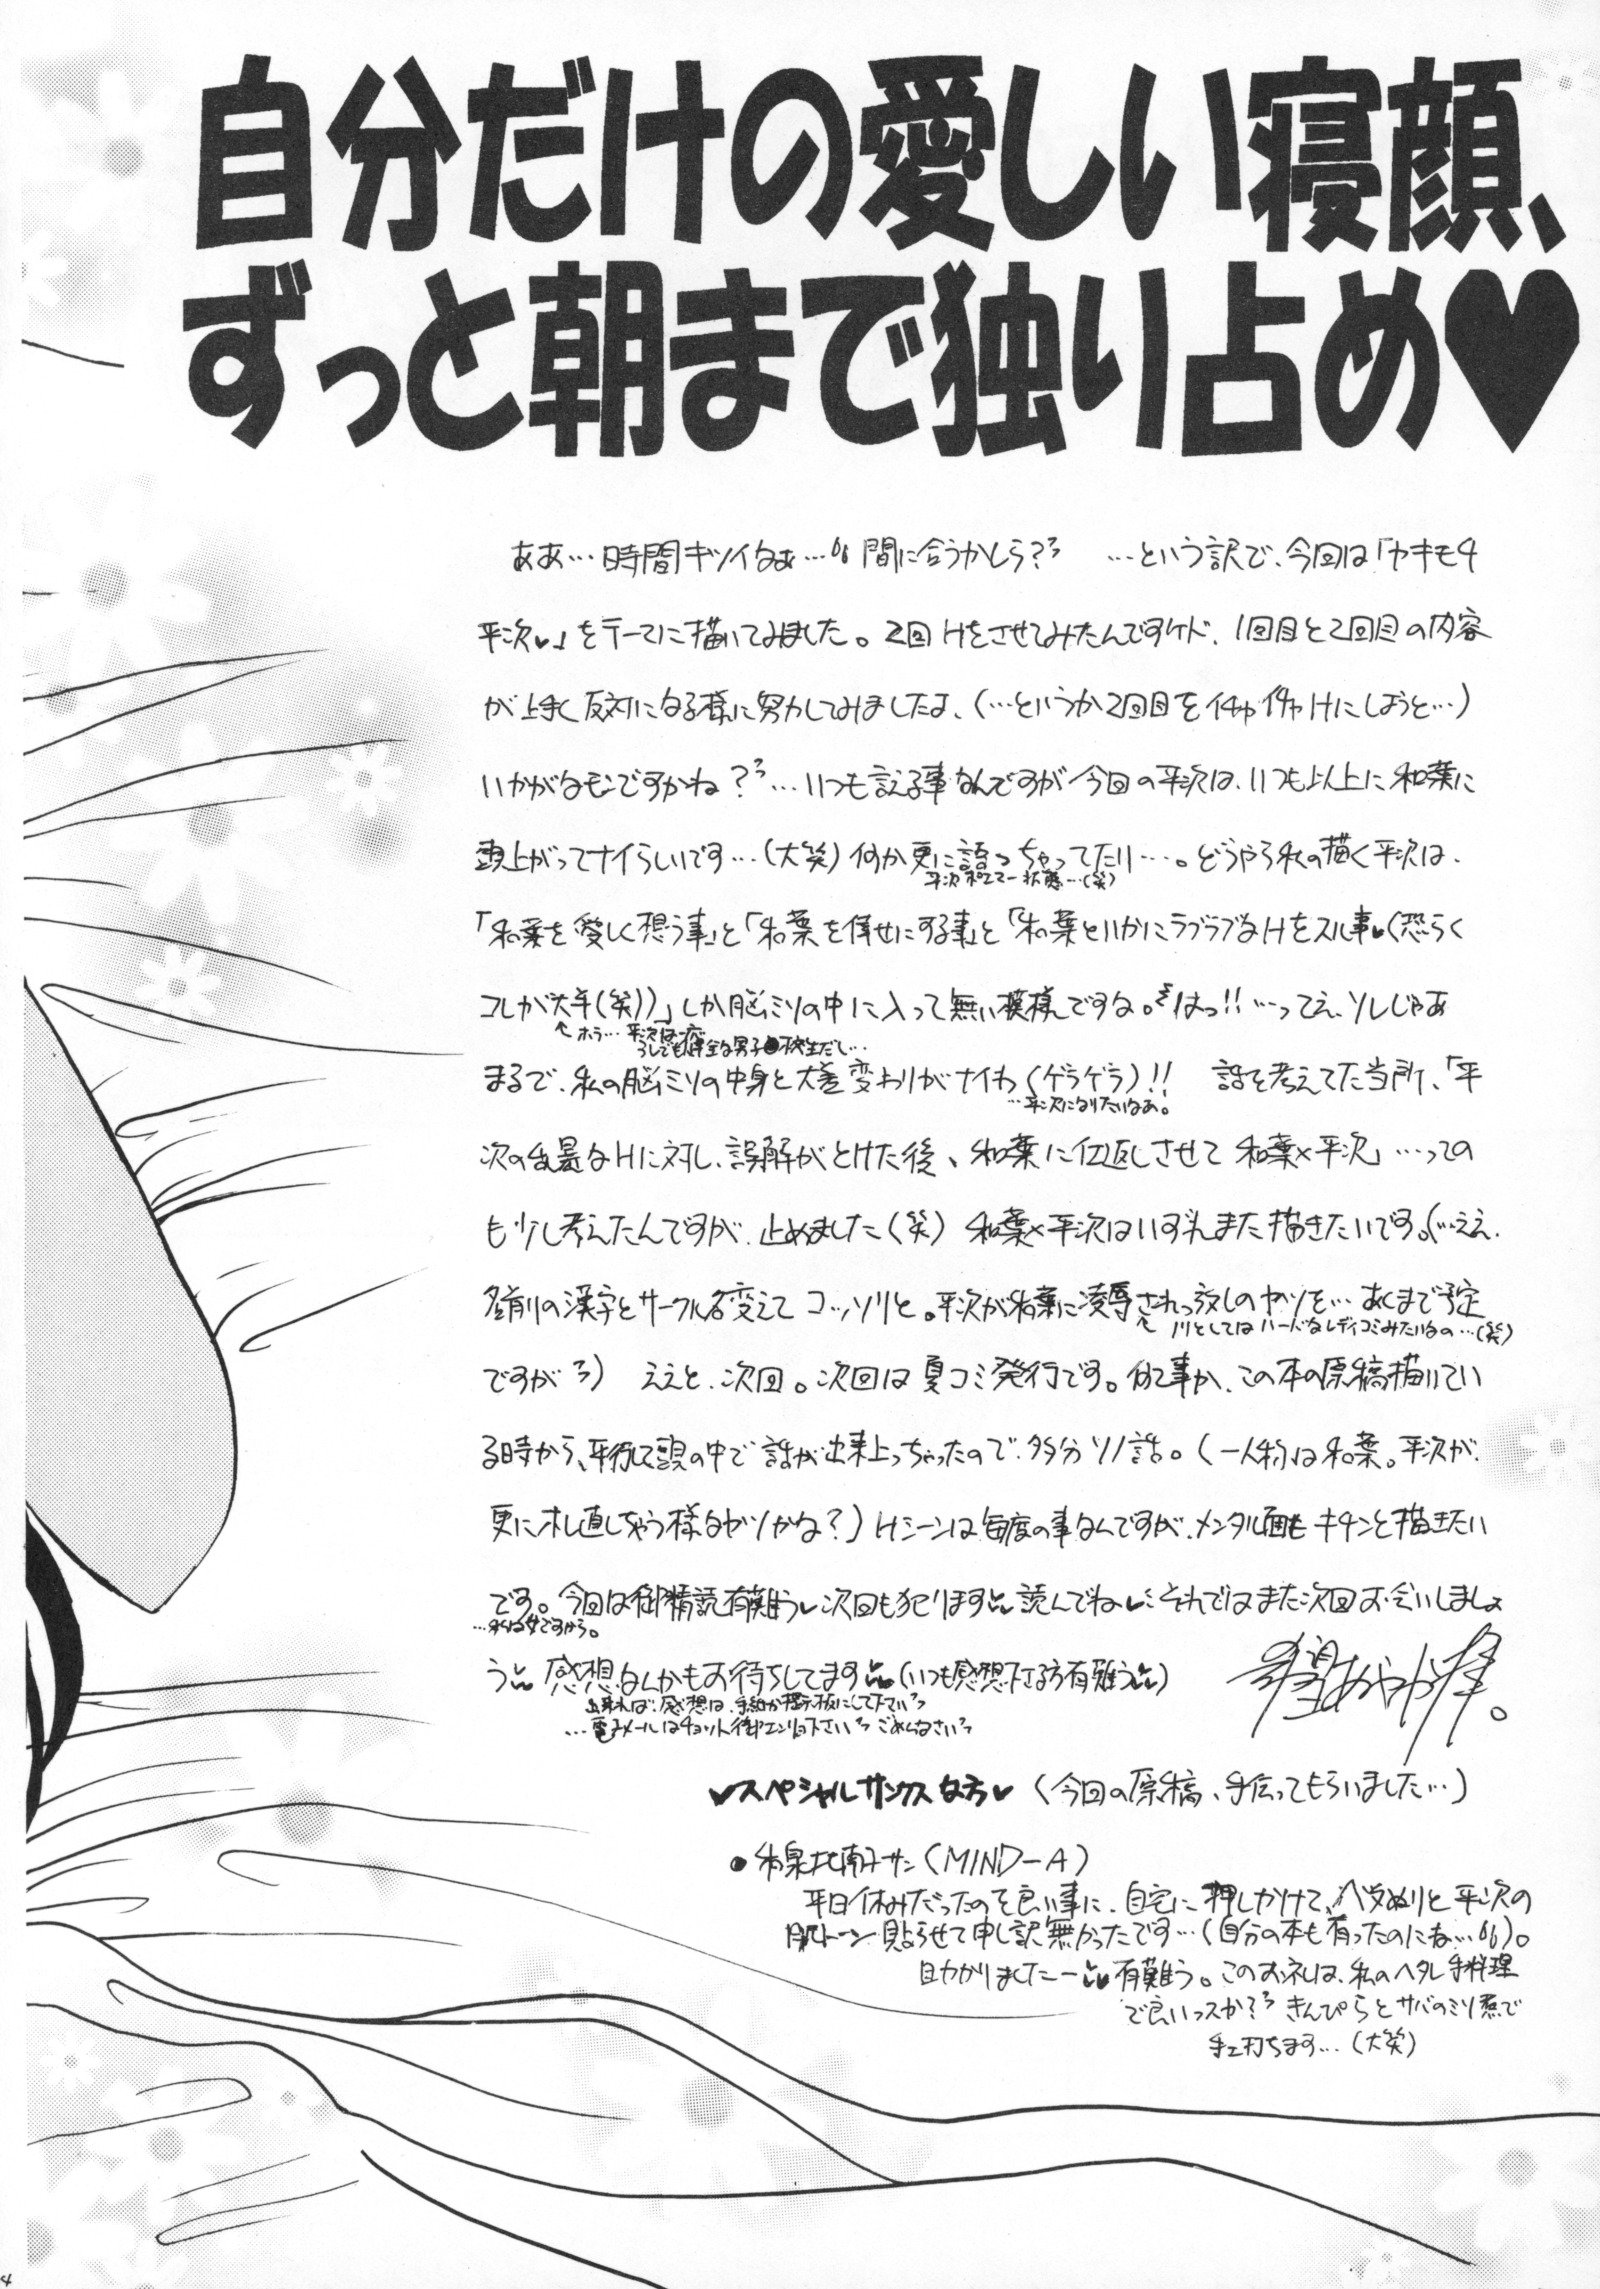 自分だけの愛しい寝顔、
ずっと朝まで独り占め♥
ああ…時間キツイなぁ… 間に合うかしら？ …という訳で、今回は「ヤキモチ
平次♥」をテーマに描いてみました。2回Hをさせてみたんですケド、1回目と2回目の内容
が上手く反対になる様に努力してみましたよ、(…というか2回目をイチャイチャHにしようと…)
いかがなモンですかね？…いつも言える事なんですが今回の平次は、いつも以上に和葉に
頭上がってナイらしいです…(大笑)何か更に語っちゃってたり…。どうやら私の描く平次は、
平次ポエマー状態…(笑)
「和葉を愛しく想う事」と「和葉を倖せにする事」と「和葉といかにラブラブなHをスル事♥(恐らく
コレが大半(笑))」しか脳ミソの中に入って無い模様ですな。はっ!!…ってえ、ソレじゃあ
まるで、私の脳ミソの中身と大差変わりがナイわ(ゲラゲラ)!! 話を考えてた当所、「平
…平次になりたいなあ。
次の乱暴なHに対し、誤解がとけた後、和葉に仕返しさせて和葉×平次」…っての
も少し考えたんですが、止めました(笑) 和葉×平次はいずれまた描きたいです。(…ええ、
名前の漢字とサークル名変えてコッソリと。平次が和葉に凌辱されっ放しのヤツを…あくまで予定
ノリとしてはハードなレディコミみたいなの…(笑)
ですが) ええと、次回。次回は夏コミ発行です。何故か、この本の原稿描いてい
る時から、平行して頭の中で話が出来上っちゃったので、多分ソノ話。(一人称は和葉。平次が、
更にホレ直しちゃう様なヤツかな？)Hシーンは毎度の事なんですが、メンタル面もキチンと描きたい
です。今回は御精読有難う♥次回も犯ります 読んでね♥それではまた次回お会いしましょ
う 感想なんかもお待ちしてます (いつも感想下さる方有難う)
出来れば、感想は、手紙か掲示板にして下さい
…電子メールはチョット御エンリョ下さい ごめんなさい
希望あやか拝。
♥スペシャルサンクスな方♥ (今回の原稿、手伝ってもらいました…)
●和泉北南子サン(MIND-A)
平日休みだったのを良い事に、自宅に押しかけて、ベタぬりと平次の
肌トーン貼らせて申し訳無かったです…(自分の本も有ったのにね…)。
助かりましたー 有難う。このお礼は、私のヘタレ手料理
で良いっスか？ きんぴらとサバのミソ煮で
手エ打ちます…(大笑)
4